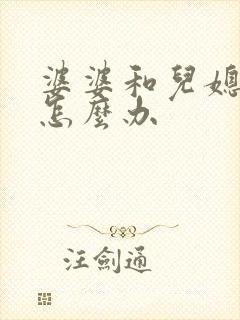 婆婆和兒媳
怎麼办
汪劍通